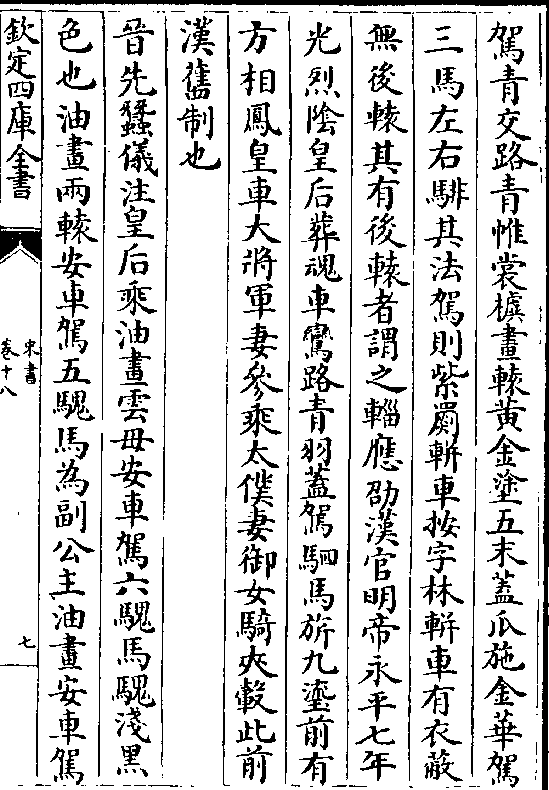 駕青交路青帷裳𣝛畫轅黄金塗五末蓋爪施金華駕
三馬左右騑其法駕則紫罽輧車按字林輧車有衣蔽
無後轅其有後轅者謂之輜應劭漢官明帝永平七年
光烈隂皇后葬魂車鸞路青羽蓋駕駟馬旂九斿前有
方相鳳皇車大將軍妻參乘太僕妻御女騎夾轂此前
漢舊制也
晉先蠶儀注皇后乘油畫雲母安車駕六騩馬騩淺黒
色也油畫兩轅安車駕五騩馬為副公主油畫安車駕
欽定四庫全書
宋書
卷十八
七